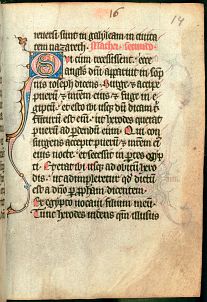 16
14
reuersi sunt in galyleam in ciuita
tem nazareth. Mathei secundo
Cum recessissent ecce
angls dni apparuit in som
nis ioseph dicens Surge & accipe
puerū & matrem eius & fuge in e
giptū et esto ibi usq̄ dū dicam t
futurū est enī ut herodes querat
puerū ad pdendū eum Qui con
surgens accepit puerū & mrem ei
eius nocte et secessit in ptes egyp
ti Et erat ibi usq̄ ad obitū hero
dis ut adimpleretur qd dictū
est a dno p pphām dicentem
Ex egypto uocaui filium meū
Tunc herodes uidens qm illusus